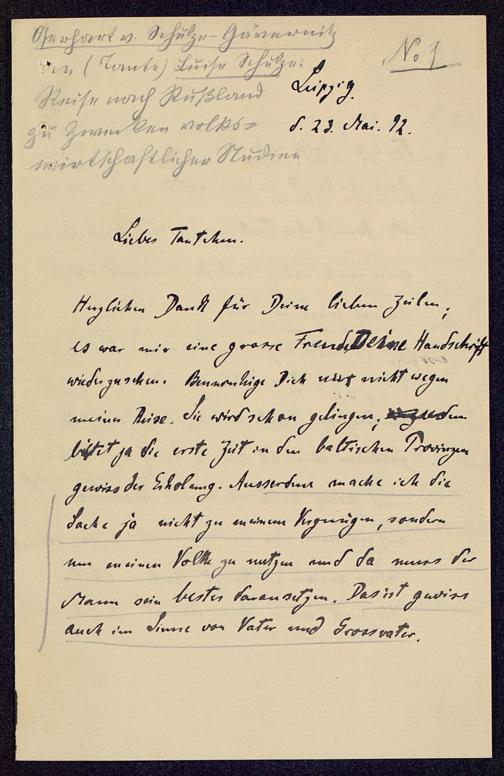 Gerhart v. Schulze-Gävernitz
an (Tante) Luise Schulze:
Reise nach Rußland
zu Zwecken volks=
wirtschaftlicher Studien
No 1
Leipzig.
d. 23. Mai. 92.
Liebes Tantchen.
Herzlichen Dank für Deine lieben Zeilen;
es war mir eine grosse Freude Deine Handschrift
wiederzusehen. Beunruhige Dich nicht wegen
meiner Reise. Sie wird schon gelingen;
bietet ja die erste Zeit in den baltischen Provinzen
gewiss der Erholung. Ausserdem mache ich die
Sache ja nicht zu meinem Vergnügen, sondern
um meinem Volke zu nutzen und da muss der
Mann sein bestes daransetzen. Das ist gewiss
auch im Sinne von Vater und Grossvater.